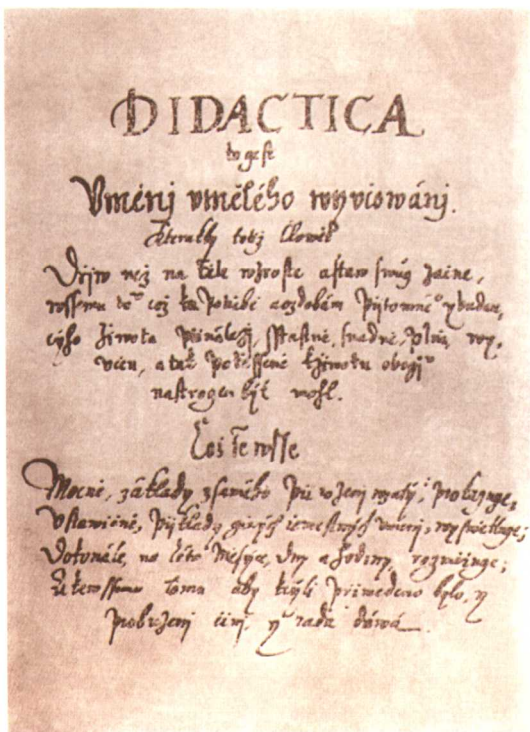 DIDACTICA
to gest
Vměnj vmělého wyvčowánj.
kterakby totiž člowěk
Dřjw než na těle wzroste a staw swůg začne,
wssemu to͂ což ku potřebě a ozdobám přjtomné͂ y budau-
cyho žiwota přináležj, sstiastně, snadně, plně, wy-
včen, a tak potěssene k žiwotu obogj͂
nastrogen být mohl.
Což se wsse
Mocně, základy z samého přirozenj wzatými, prokazuge,
Vstawičně, přjklady giných řemeslných vměnj, wyswětluge;
Dokonale, na léta Měsýce, dny a hodiny, rozměřuge;
K tomu aby k cýli přiwedeno bylo, y
probuzenj činj, y radu dáwá.